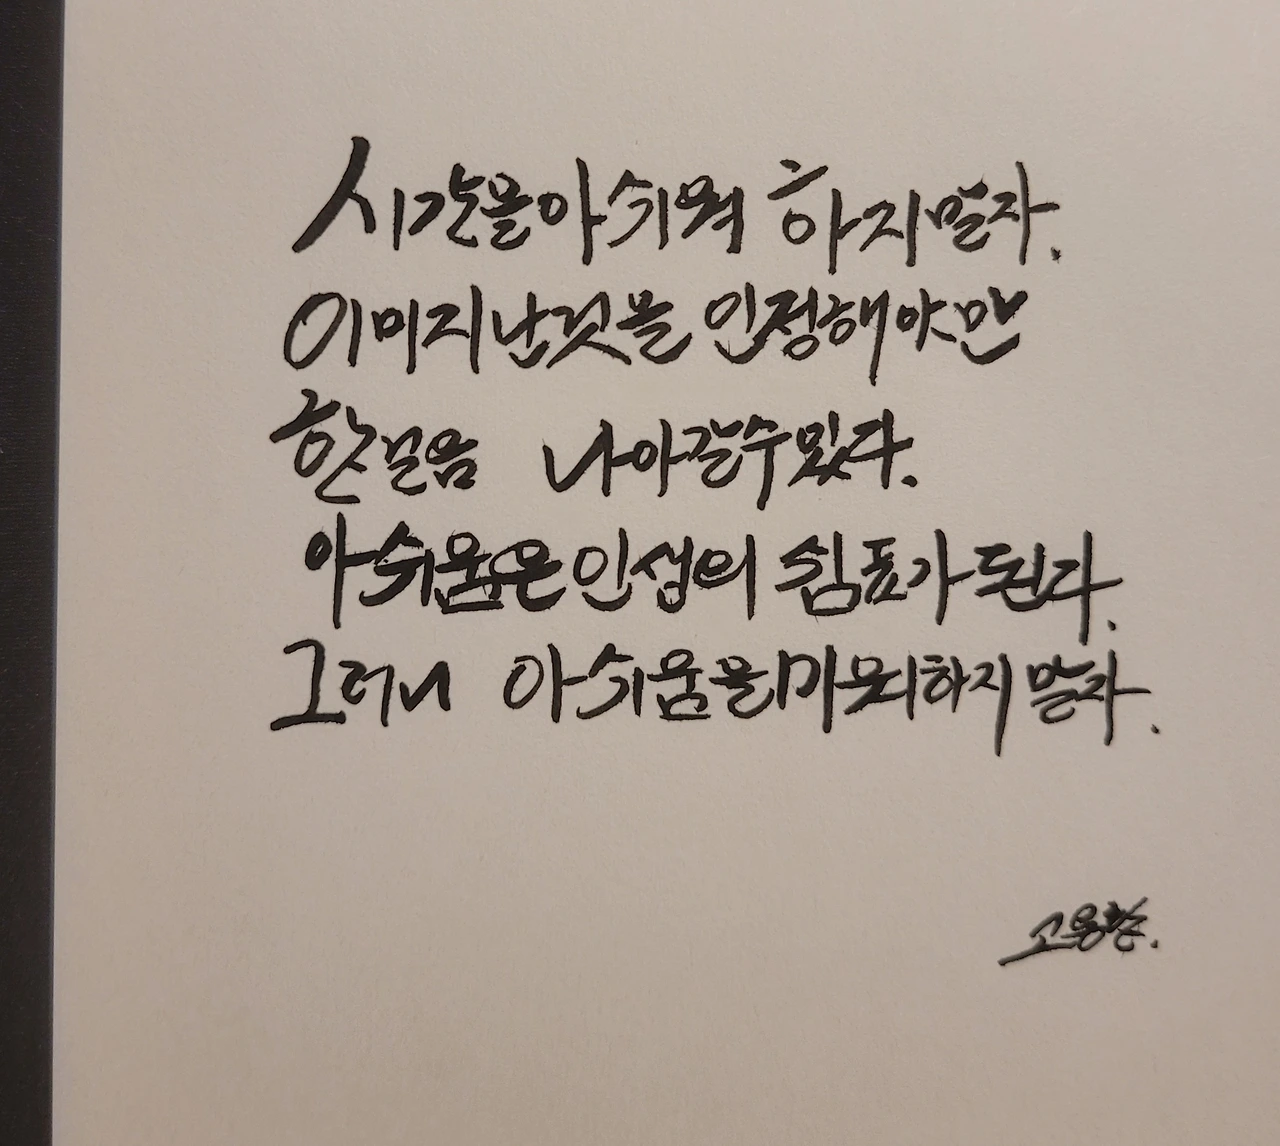 시간을 아쉬워 하지말자.
이미 지난것을 인정해야만
한걸음 나아갈수있다.
아쉬움은 인생의 쉼표가 된다.
그러니 아쉬움을 미워하지 말자.